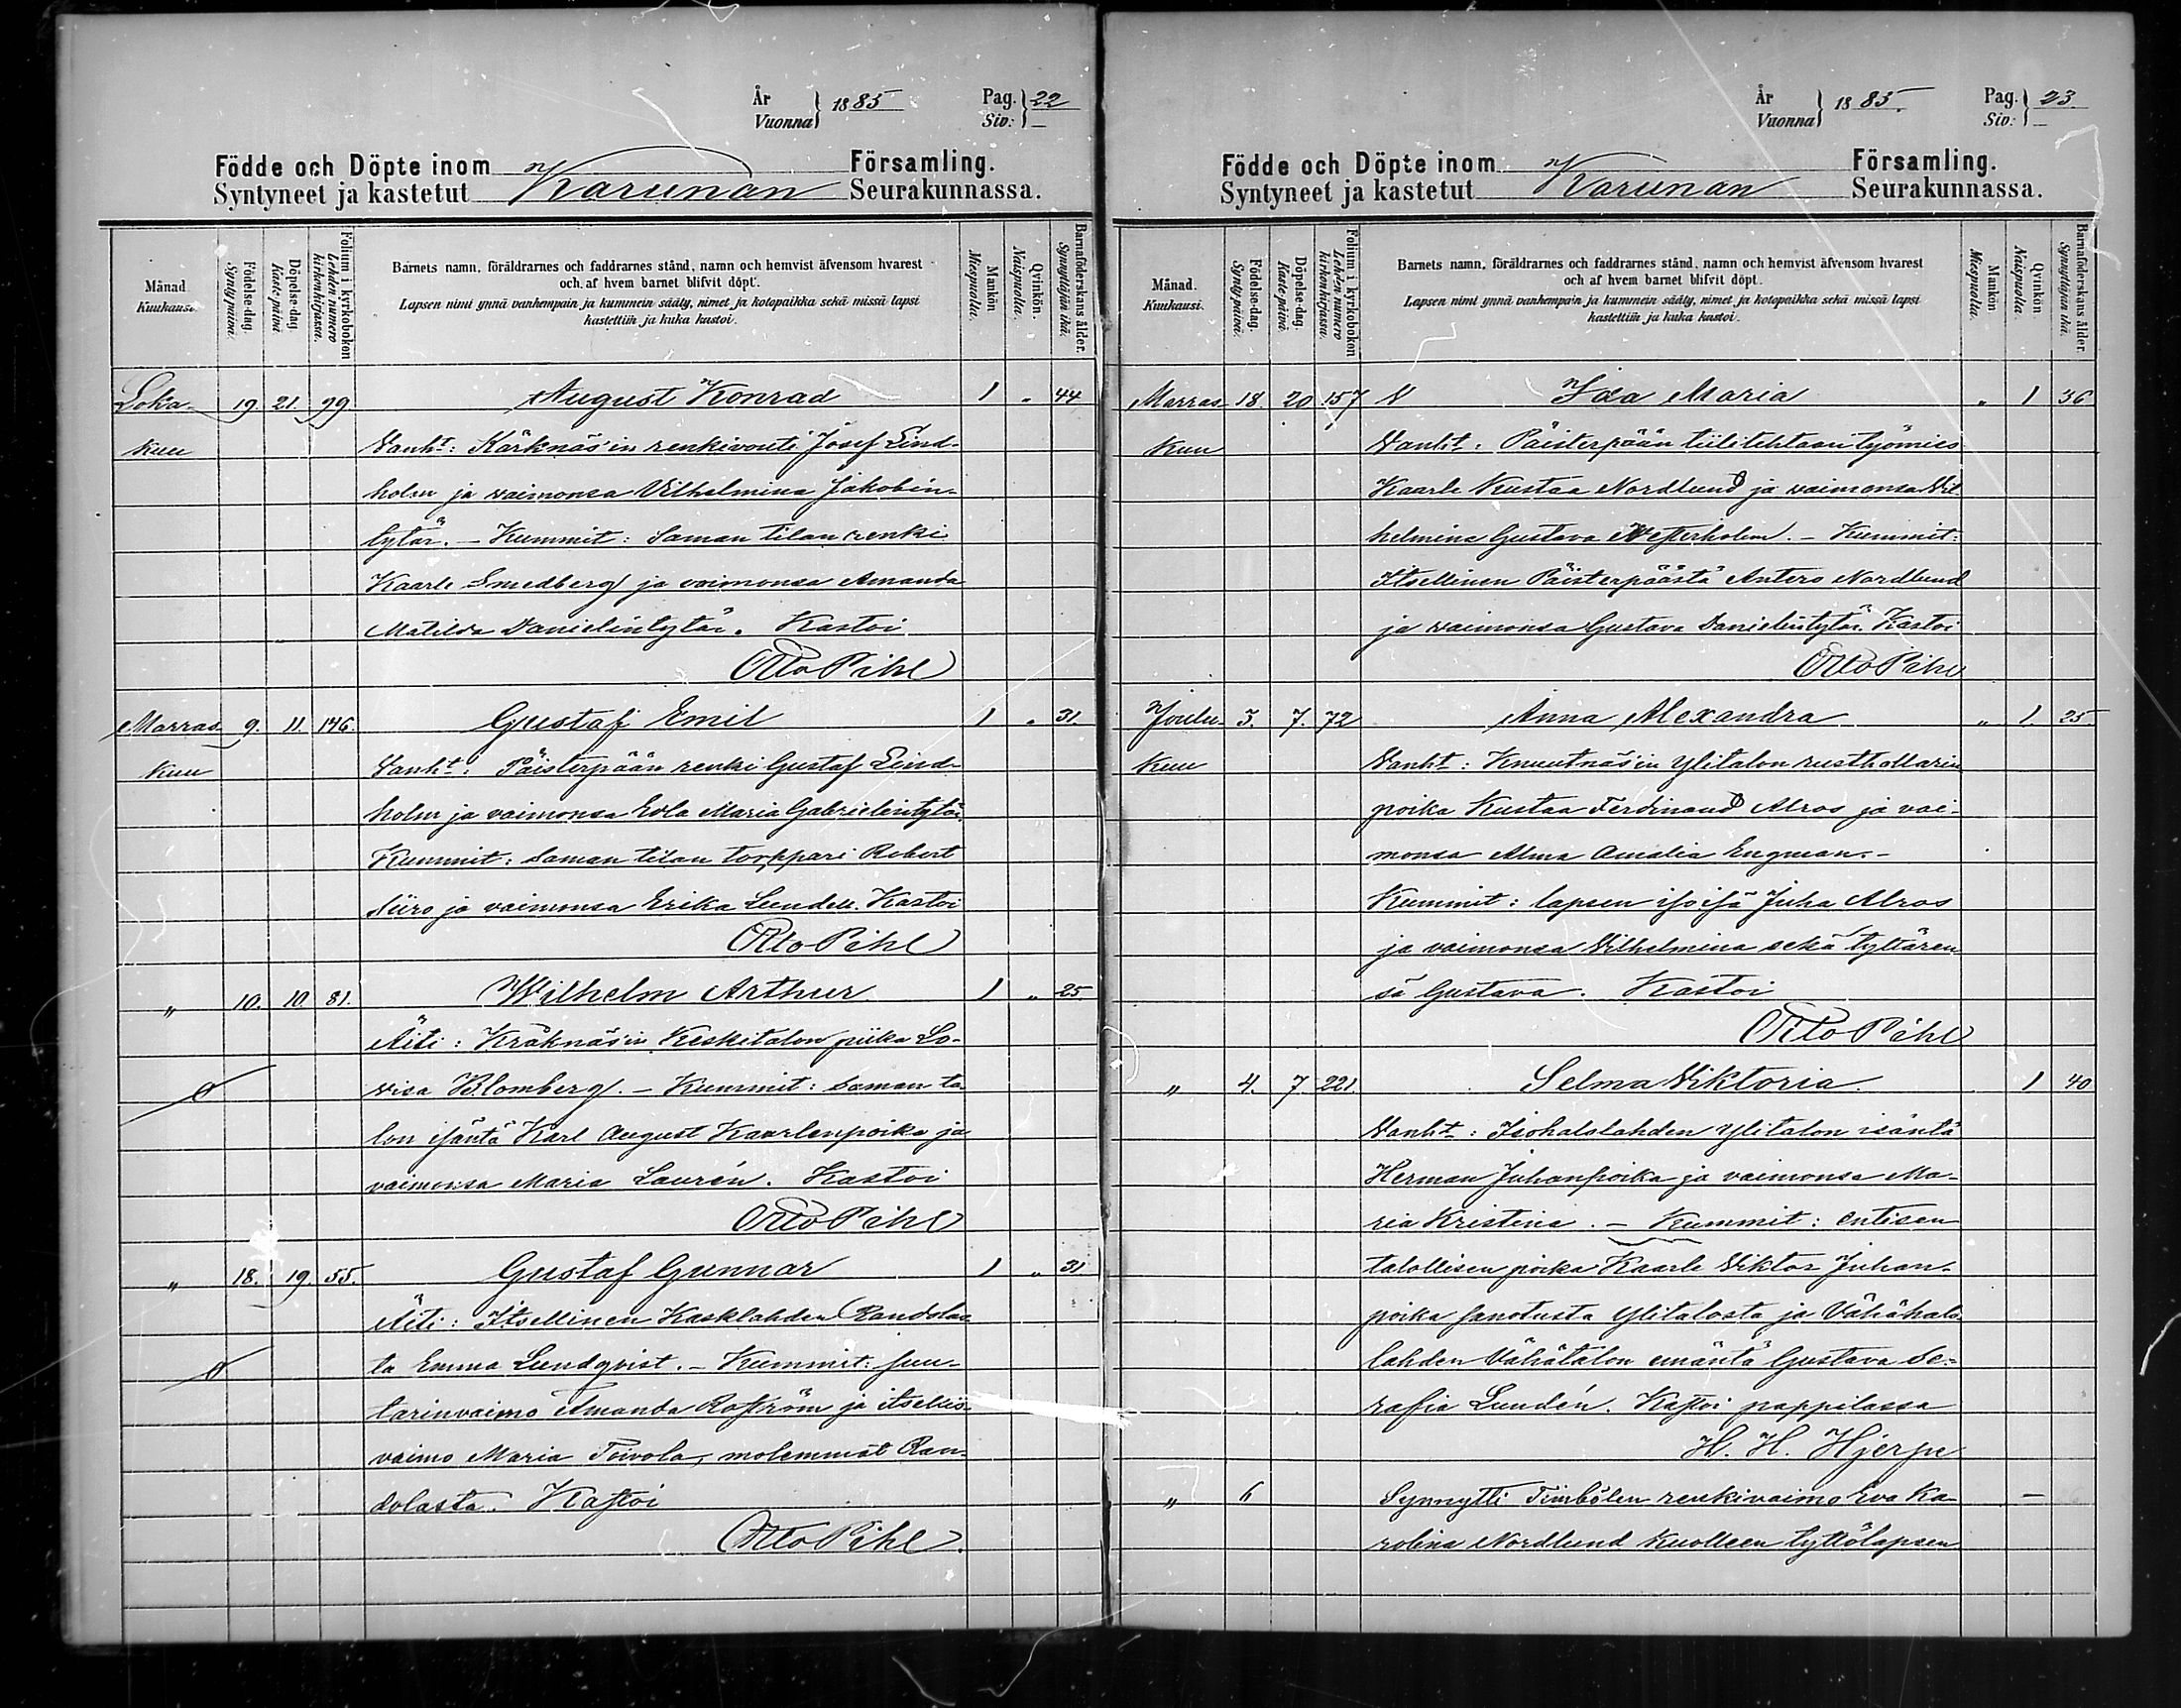 År
Vuonna } 1885
Pag.
Siv: } 22
Födde och Döpte inom Karunan Församling.
Syntyneet ja kastetut Seurakunnassa.
Månad. Kuukausi.
Födelse-dag. Synty-päivä.
Döpelse-dag. Kaste-päivä.
Folium i kyrkoboken Lehden numero kirkonkirjassa.
Barnets namn, föräldrarnes och faddrarnes stånd, namn och hemvist äfvensom hvarest
och af hvem barnet blifvit döpt.
Lapsen nimi ynnä vanhempain ja kummein sääty, nimet ja kotopaikka sekä missä lapsi
kastettiin ja kuka kastoi.
Mankön Miespuolia.
Qvinkön. Naispuolia.
Barnaföderskans ålder. Synnyttäjän ikä.
Loka- 19. 21. 99 August Konrad 1 " 44
kuu Vanht: Kärknäs'in renkivouti Josef Lind-
holm ja vaimonsa Vilhelmina Jakobin-
tytär. - Kummit: Saman tilan renki
Kaarle Smedberg ja vaimonsa Amanda
Matilda Danielintytär. Kastoi
Otto Pihl
Marras- 9. 11. 146. Gustaf Emil 1 " 31.
kuu Vanht: Päisterpään renki Gustaf Lind-
holm ja vaimonsa Eva Maria Gabrielintytär.
Kummit: Saman tilan torppari Robert
Siiro ja vaimonsa Erika Lundell. Kastoi
Otto Pihl
" 10. 10. 81. Wilhelm Arthur 1 " 25
Äiti: Kräknäs'in Keskitalon piika Lo-
visa Blomberg. - Kummit: Saman ta-
lon isäntä Karl August Kaarlenpoika ja
vaimonsa Maria Laurén. Kastoi
Otto Pihl
" 18. 19. 55. Gustaf Gunnar 1 " 31
Äiti: Itsellinen Kasklahden Randolas-
ta Emma Lundqvist. - Kummit: suu-
tarinvaimo Amanda Roström ja itsellis-
vaimo Maria Toivola, molemmat Ran-
dolasta. Kastoi
Otto Pihl.
År
Vuonna } 1885.
Pag.
Siv: } 23
Födde och Döpte inom Karunan Församling.
Syntyneet ja kastetut Seurakunnassa.
Månad. Kuukausi.
Födelse-dag. Synty-päivä.
Döpelse-dag. Kaste-päivä.
Folium i kyrkoboken Lehden numero kirkonkirjassa.
Barnets namn, föräldrarnes och faddrarnes stånd, namn och hemvist äfvensom hvarest
och af hvem barnet blifvit döpt.
Lapsen nimi ynnä vanhempain ja kummein sääty, nimet ja kotopaikka sekä missä lapsi
kastettiin ja kuka kastoi.
Mankön Miespuolia.
Qvinkön Naispuolia.
Barnaföderskans ålder. Synnyttäjän ikä.
Marras- 18. 20 157 Ida Maria " 1 36
kuu Vanht: Päisterpään tiilitehtaan työmies
Kaarle Kustaa Nordlund ja vaimonsa Vil-
helmina Gustava Westerholm. - Kummit:
Itsellinen Päisterpäästä Antero Nordlund
ja vaimonsa Gustava Danielintytär. Kastoi
Otto Pihl
Joulu- 3. 7. 72 Anna Alexandra " 1. 25.
kuu Vanht: Knuutnäs'in Ylitalon rusthollarin
poika Kustaa Ferdinand Alros ja vai-
monsa Alma Amalia Engman. -
Kummit: lapsen isoisä Juha Alros
ja vaimonsa Vilhelmina sekä tyttären-
sä Gustava. Kastoi
Otto Pihl
" 4. 7. 221. Selma Viktoria 1 40
Vanht: Isohalslahden Ylitalon isäntä
Herman Juhanpoika ja vaimonsa Ma-
ria Kristina. - Kummit: entisen
talollisen poika Kaarle Viktor Juhan-
poika sanotusta Ylitalosta ja Vähähals-
lahden Vähätalon emäntä Gustava Se-
rafia Lundén. Kastoi pappilassa
H. H. Hjerpe
" 6 Synnytti Timbölen renkivaimo Eva Ka- -
rolina Nordlund kuolleen tyttölapsen